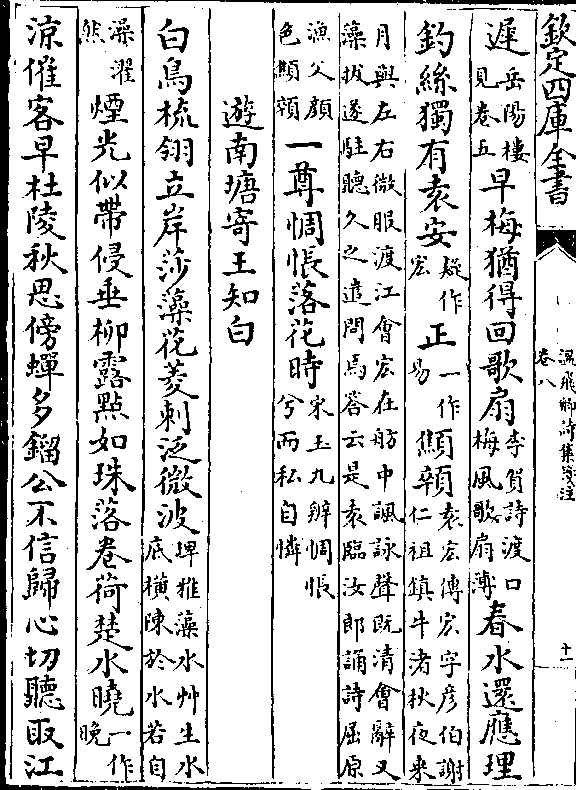 欽定四庫全書
溫飛卿詩集箋注
卷八
十一
遲岳陽樓見卷五早梅猶得回歌扇李賀詩渡口梅風歌扇薄春水還應理
釣絲獨有袁安疑作宏正一作易顦顇袁宏傳宏字彦伯謝仁祖鎮牛渚秋夜来
月與左右微服渡江會宏在舫中諷詠聲既清會辭又藻拔遂駐聽久之遣問焉荅云是袁臨汝郎誦詩屈原
漁父顔色顦顇一尊惆悵落花時宋玉九辨惆悵兮而私自憐
遊南塘寄王知白
白鳥梳翎立岸莎藻花菱刺泛微波埤雅藻水艸生水底橫陳於水若自
澡濯然煙光似帶侵垂柳露點如珠落卷荷楚水曉一作晚
涼催客早杜陵秋思傍蟬多鎦公不信歸心切聽取江